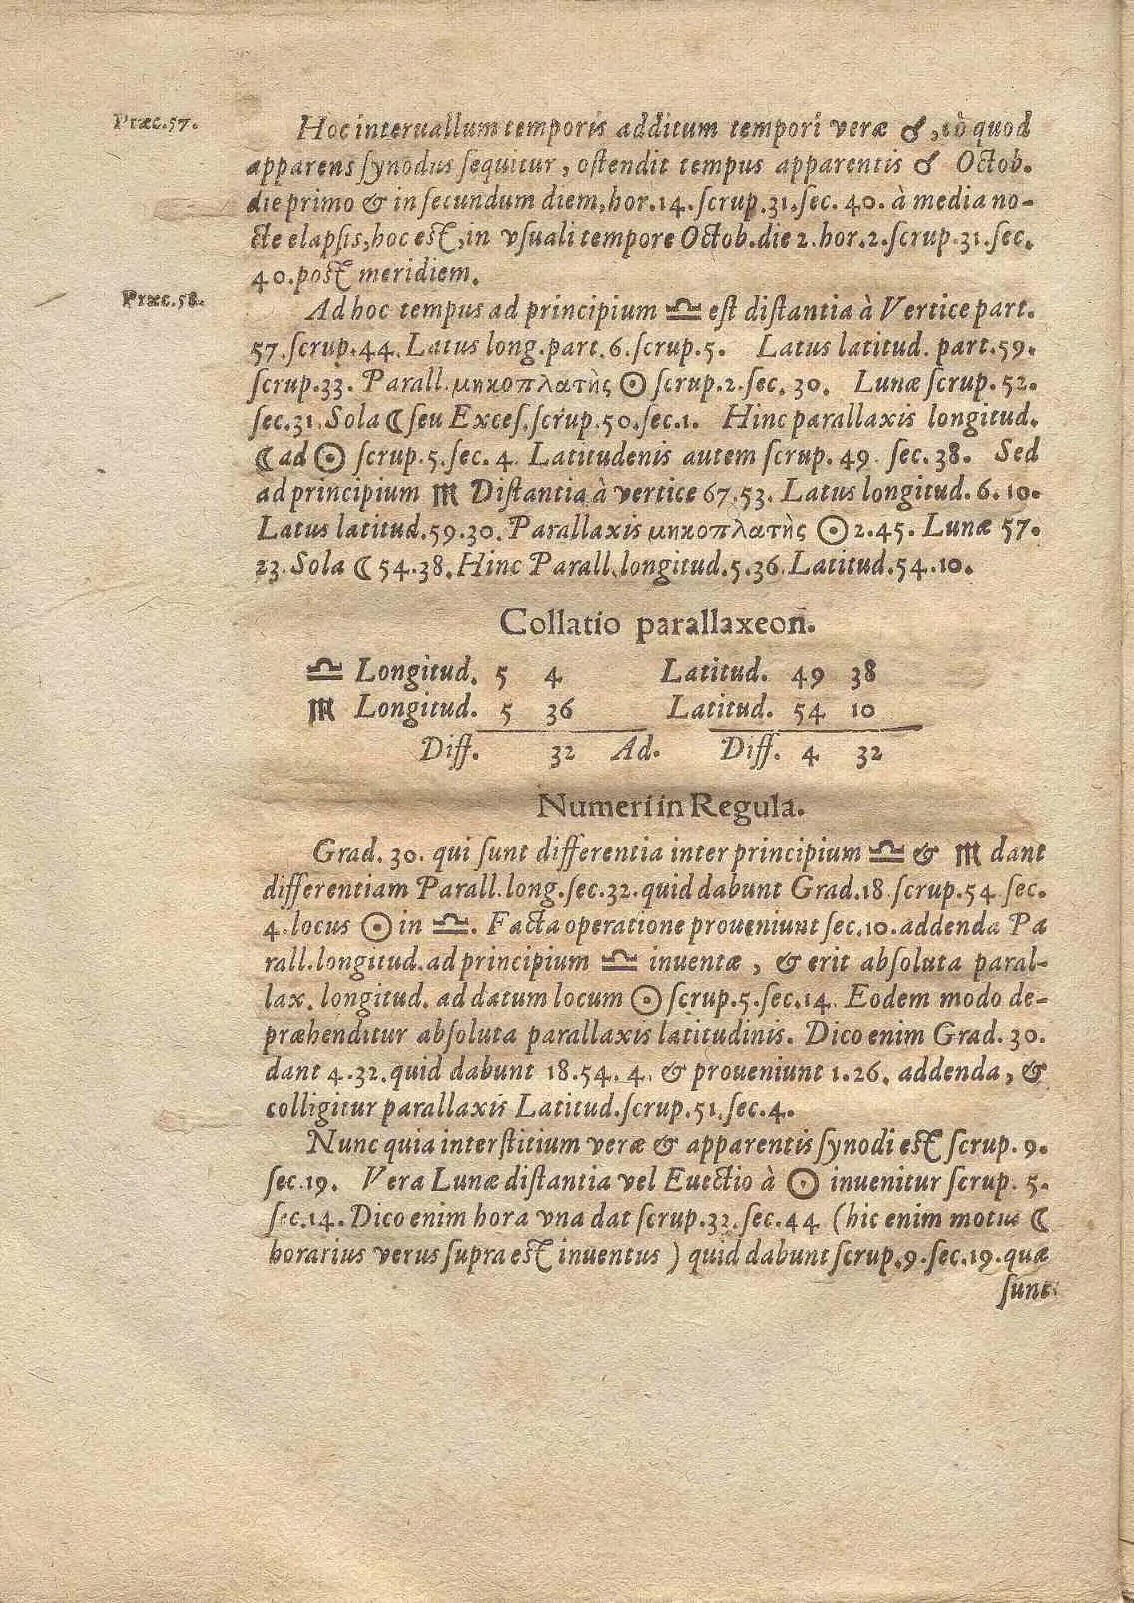 Præc.57.
Hoc interuallum temporis additum tempori veræ ☌, eò quod
apparens ſynodus ſequitur, oſtendit tempus apparentis ☌ Octob.
die primo & in ſecundum diem, hor.14.ſcrup.31.ſec.40. à media no-
cte elapſis, hoc eſt, in vſuali tempore Octob.die 2.hor.2.ſcrup.31.ſec.
40.poſt meridiem.
Præc.58.
Ad hoc tempus ad principium ♎ eſt diſtantia à Vertice part.
57.ſcrup.44. Latus long.part.6.ſcrup.5. Latus latitud. part.59.
ſcrup.33. Parall. μηκοπλατὴς ☉ ſcrup.2.ſec.30. Lunæ ſcrup.52.
ſec.31. Sola ☾ ſeu Exceſ.ſcrup.50.ſec.1. Hinc parallaxis longitud.
☾ ad ☉ ſcrup.5.ſec.4. Latitudenis autem ſcrup.49. ſec.38. Sed
ad principium ♏ Diſtantia à vertice 67.53. Latus longitud.6.10.
Latus latitud.59.30. Parallaxis μηκοπλατὴς ☉ 2.45. Lunæ 57.
23. Sola ☾ 54.38. Hinc Parall.longitud.5.36. Latitud.54.10.
Collatio parallaxeon.
♎ Longitud. 5 4 Latitud. 49 38
♏ Longitud. 5 36 Latitud. 54 10
Diff. 32 Ad. Diff. 4 32
Numeri in Regula.
Grad. 30. qui ſunt differentia inter principium ♎ & ♏ dant
differentiam Parall.long.ſec.32. quid dabunt Grad.18.ſcrup.54.ſec.
4. locus ☉ in ♎. Facta operatione proueniunt ſec.10. addenda Pa
rall.longitud.ad principium ♎ inuentæ, & erit abſoluta paral-
lax. longitud. ad datum locum ☉ ſcrup.5.ſec.14. Eodem modo de-
præhenditur abſoluta parallaxis latitudinis. Dico enim Grad.30.
dant 4.32. quid dabunt 18.54.4. & proueniunt 1.26. addenda, &
colligitur parallaxis Latitud.ſcrup.51.ſec.4.
Nunc quia interſtitium veræ & apparentis ſynodi eſt ſcrup.9.
ſec.19. Vera Lunæ diſtantia vel Euectio à ☉ inuenitur ſcrup. 5.
ſec.14. Dico enim hora vna dat ſcrup.32.ſec.44 (hic enim motus ☾
horarius verus ſupra eſt inuentus) quid dabunt ſcrup.9.ſec.19.quæ
ſunt